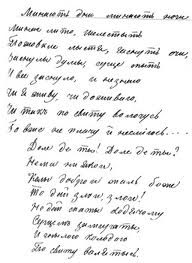 Минають дни минають ночи
Минає лито, шелестыть
Пожовкле лыстя, гаснуть очи,
Заснулы думы, серце спыть
И все заснуло, и незнаю
Чи я живу, чи доживаю,
Чи такъ по свиту волочусь
Бо вже не плачу й несміюсь...
Доле де ты! Доле де ты?
Нема ниякои,
Колы доброй жаль боже
То дай злои, злои!
Не дай спаты ходячому
Серцемъ замираты,
И гнылою колодою
По свиту валятысь.